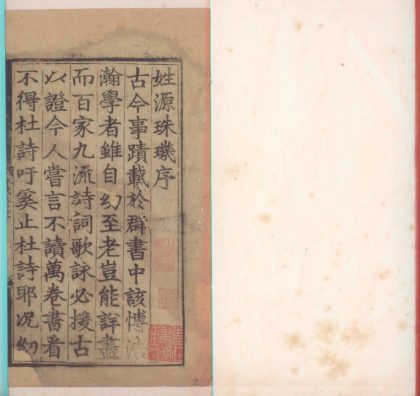 姓源珠璣序
古今事蹟載於群書中該博浩
瀚學者雖自幼至老豈能詳盡
而百家九流詩詞歌詠必援古
以證今人嘗言不讀萬卷書看
不得杜詩吁奚止杜詩耶况幼